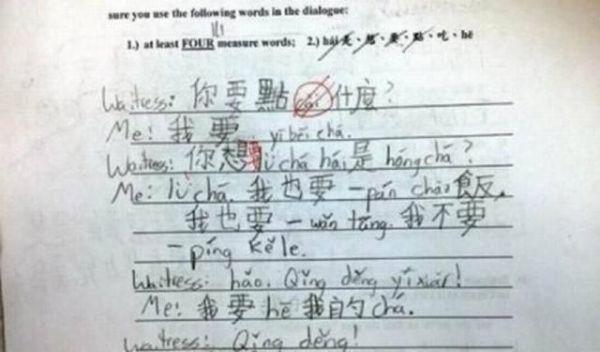 sure you use the following words in the dialogue:
1.) at least FOUR measure words; 2.) hái 是、想、要、點、吃、hē
Waitress: 你要點 什麼?
Me: 我要 yì bēi chá.
Waitress: 你想要lǜ chá hái 是 hóng chá?
Me: lǜ chá. 我也要一pán chǎo 飯。
我也要一wǎn tāng. 我不要
一píng kě lè.
Waitress: hǎo. Qǐng děng yíxiàr!
Me: 我要 hē 我的 chá.
Waitress: Qǐng děng!